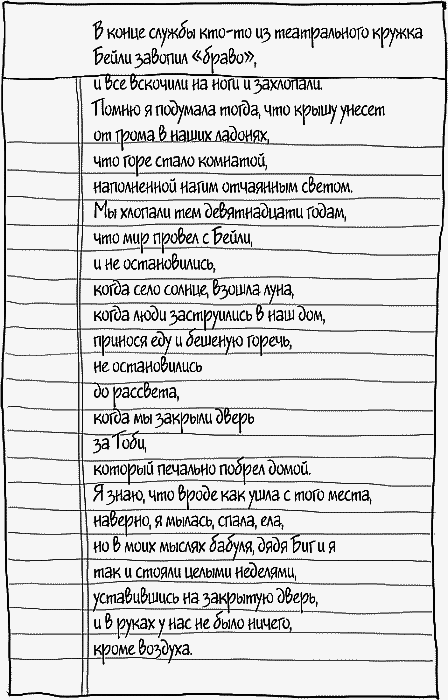 В конце службы кто-то из театрального кружка
Бейли завопил «браво»,
и все вскочили на ноги и захлопали.
Помню я подумала тогда, что крышу унесет
от грома в наших ладонях,
что горе стало комнатой,
наполненной нагим отчаянным светом.
Мы хлопали тем девятнадцати годам,
что мир провел с Бейли,
и не остановились,
когда село солнце, взошла луна,
когда люди заструились в наш дом,
принося еду и бешеную горечь,
не остановились
до рассвета,
когда мы закрыли дверь
за Тоби,
который печально побрел домой.
Я знаю, что вроде как ушла с того места,
наверно, я мылась, спала, ела,
но в моих мыслях бабуля, дядя Биг и я
так и стояли целыми неделями,
уставившись на закрытую дверь,
и в руках у нас не было ничего,
кроме воздуха.